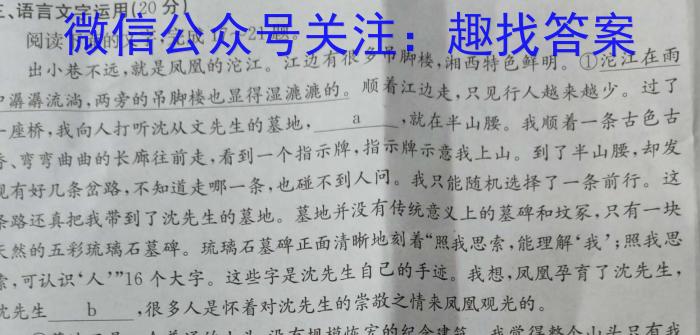 三、语言文字运用(20分)
微信公众号关注：趣找答案
阅读
出小巷不远,就是凤凰的沱江。江边有很多吊脚楼,湘西特色鲜明。①沱江在雨
中潺潺流淌,两旁的吊脚楼也显得湿漉漉的。顺着江边走,只见行人越来越少。过了
一座桥,我向人打听沈从文先生的墓地, a ,就在半山腰。我顺着一条古色古
香、弯弯曲曲的长廊往前走,看到一个指示牌,指示牌示意我上山。到了半山腰,却发
现有好几条岔路,不知道走哪一条,也碰不到人问。我只能随机选择了一条前行。这
条路还真把我带到了沈先生的墓地。墓地并没有传统意义上的墓碑和坟冢,只有一块
天然的五彩琉璃石墓碑。琉璃石墓碑正面清晰地刻着“照我思索,能理解‘我’;照我思
索,可认识‘人’”16个大字。这些字是沈先生自己的手迹。我想,凤凰孕育了沈先生,
沈先生 b ,很多人是怀着对沈先生的崇敬之情来凤凰观光的。
我觉得整个山头只有我